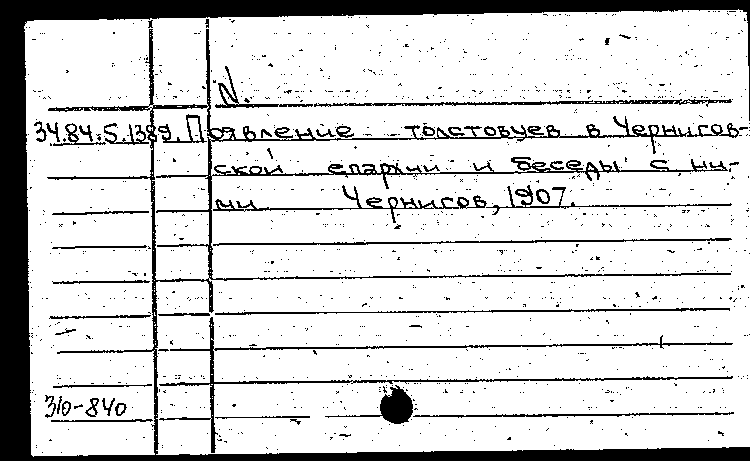 N.
34.84.5.1389. Появление толстовцев в Чернигов-
ской епархии и беседы с ни-
ми Чернигов, 1907.
310-840